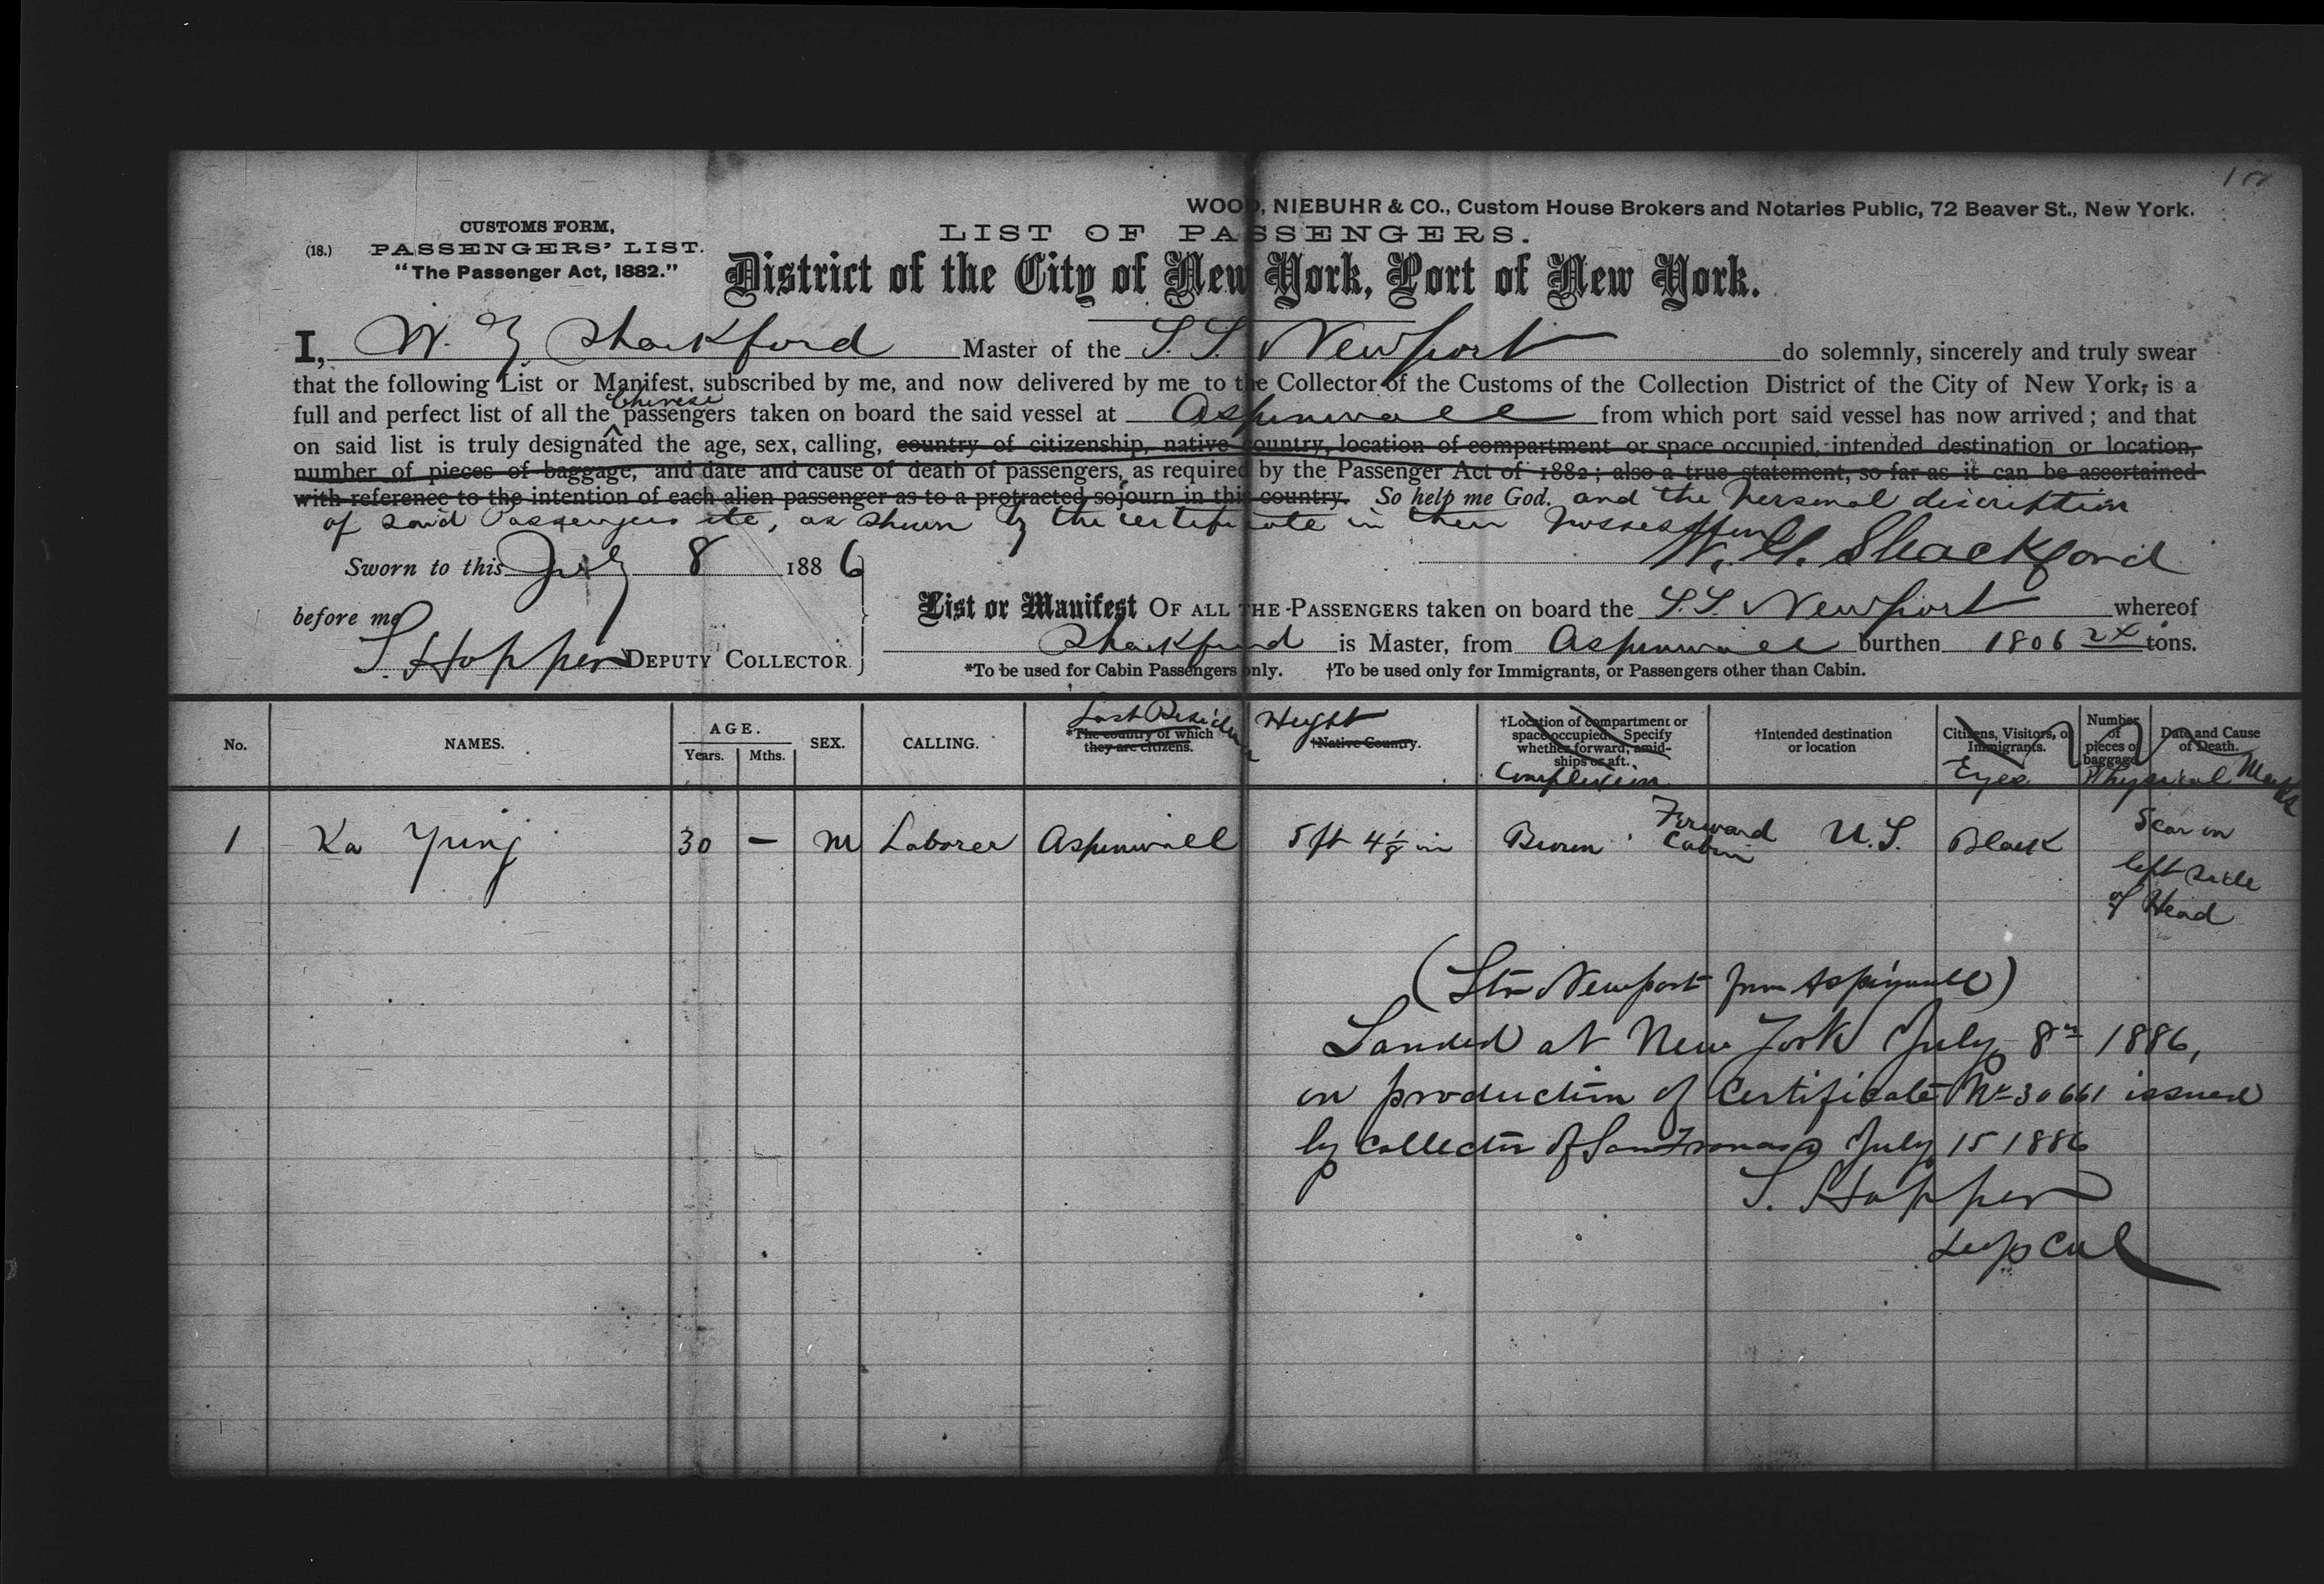 WOOD, NIEBUHR & CO., Custom House Brokers and Notaries Public, 72 Beaver St., New York.
CUSTOMS FORM,
(18.) PASSENGERS' LIST.
"The Passenger Act, 1882."
LIST OF PASSENGERS.
District of the City of New York, Port of New York.
I, W. G. Shackford Master of the S.S. Newport do solemnly, sincerely and truly swear
that the following List or Manifest, subscribed by me, and now delivered by me to the Collector of the Customs of the Collection District of the City of New York, is a
full and perfect list of all the Chinese passengers taken on board the said vessel at Aspinwall from which port said vessel has now arrived; and that
on said list is truly designated the age, sex, calling, country of citizenship, native country, location of compartment or space occupied, intended destination or location,
number of pieces of baggage, and date and cause of death of passengers, as required by the Passenger Act of 1882; also a true statement, so far as it can be ascertained
with reference to the intention of each alien passenger as to a protracted sojourn in this country. So help me God. and the personal discription
of said Passengers etc, as shewn by the certificate in their possession
W. G. Shackford
Sworn to this July 8 1886
before me
S. Hopper DEPUTY COLLECTOR
List or Manifest OF ALL THE PASSENGERS taken on board the S.S. Newport whereof
Shackford is Master, from Aspinwall burthen 1806 tons.
*To be used for Cabin Passengers only. †To be used only for Immigrants, or Passengers other than Cabin.
No. NAMES. AGE. Years. Mths. SEX. CALLING. *The country of which they are citizens. Last Residence †Native Country. Height †Location of compartment or space occupied. Specify whether forward, amidships or aft. Complexion †Intended destination or location Citizens, Visitors, or Immigrants. Eyes Number of pieces of baggage Date and Cause of Death. Physical Marks
1 Ka Ying 30 – M Laborer Aspinwall 5 ft 4 1/8 in Brown Forward Cabin U.S. Black Scar on
left side
of Head
(Str Newport from Aspinwall)
Landed at New York July 8th 1886,
on production of Certificate No 30661 issued
by Collector of San Francisco July 15 1886
S. Hopper
Dep Col